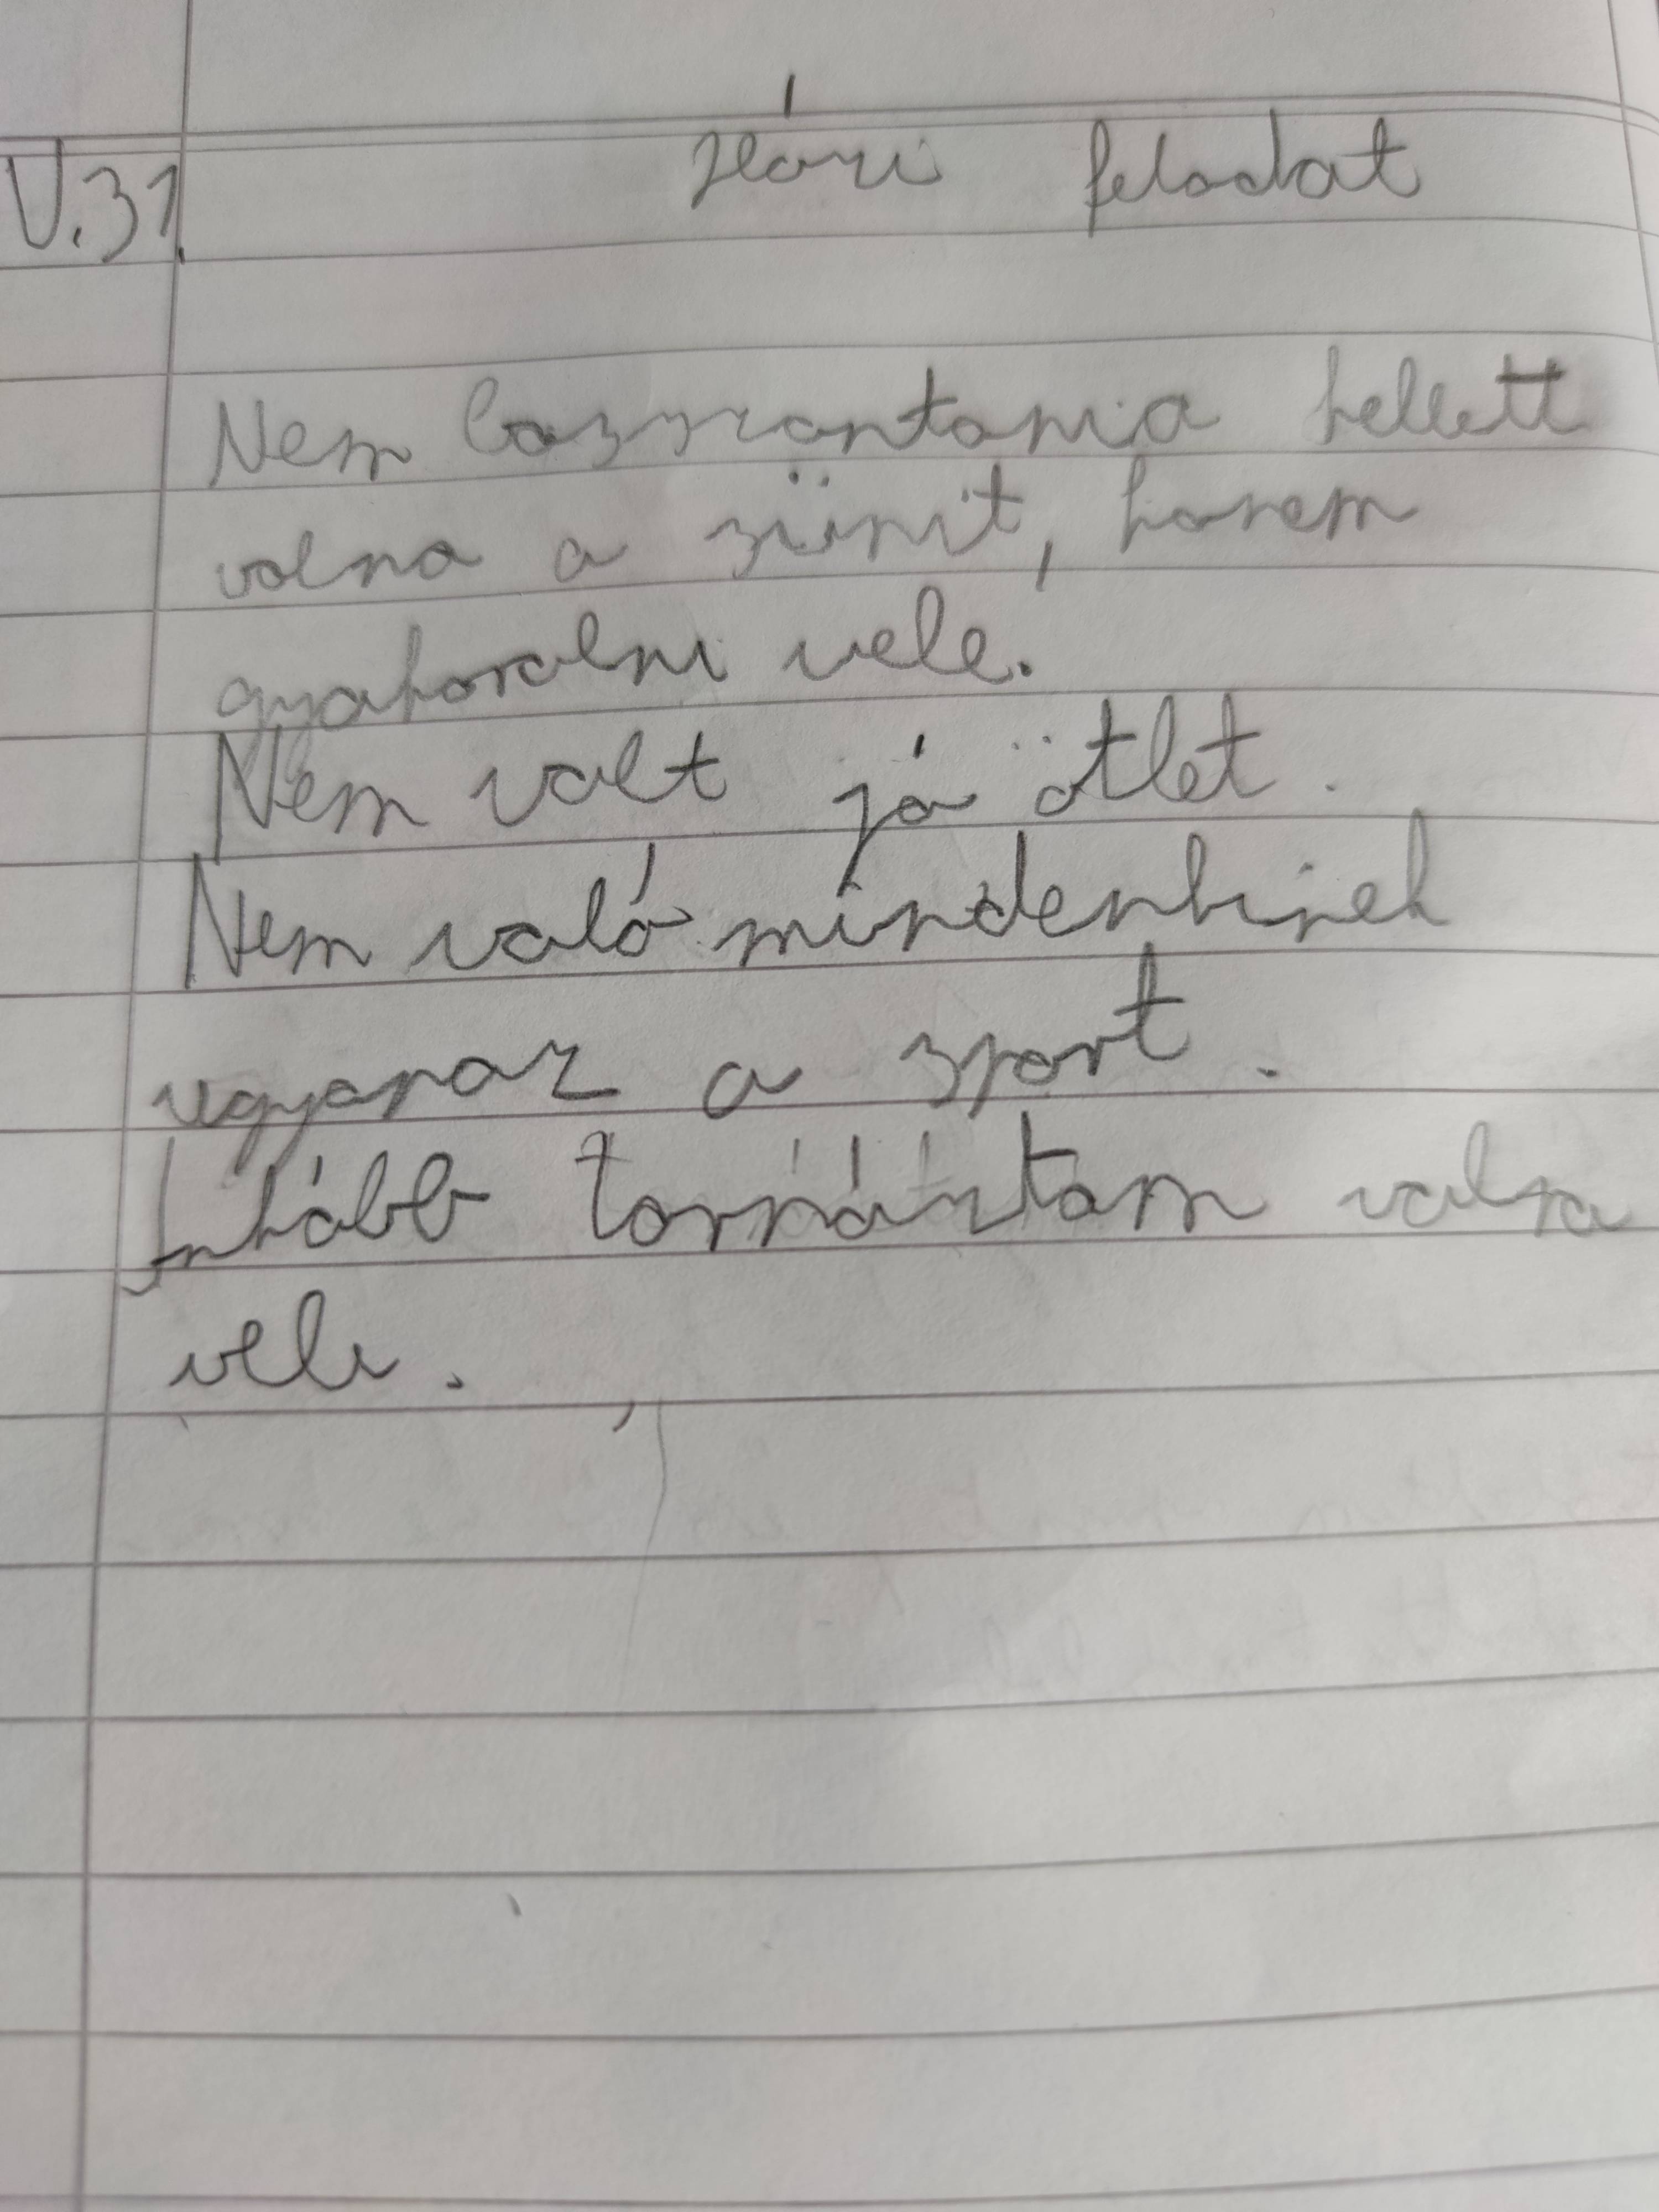 V.31. Házi feladat
Nem bosszrantania kellett
volna a sünit, hanem
gyakorolni vele.
Nem volt jó ötlet.
Nem való mindenkinek
ugyanaz a sport.
Inkább tornáztam volna
vele.